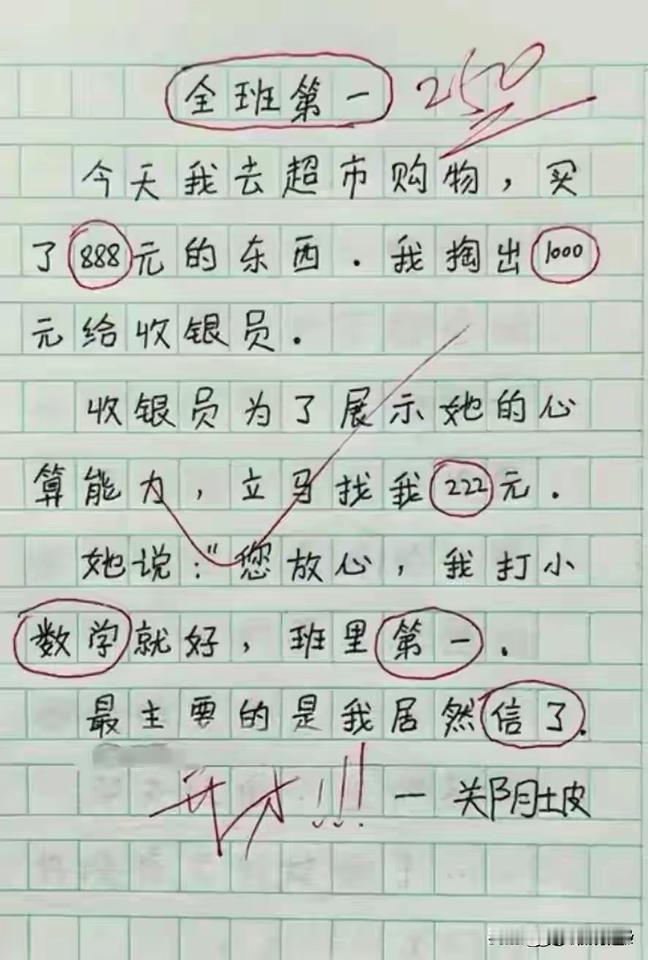 全班第一 250
今天我去超市购物，买
了888元的东西．我掏出1000
元给收银员．
收银员为了展示她的心
算能力，立马找我222元．
她说："您放心，我打小
数学就好，班里第一．
最主要的是我居然信了．
天才！！！ 一 关阴土皮